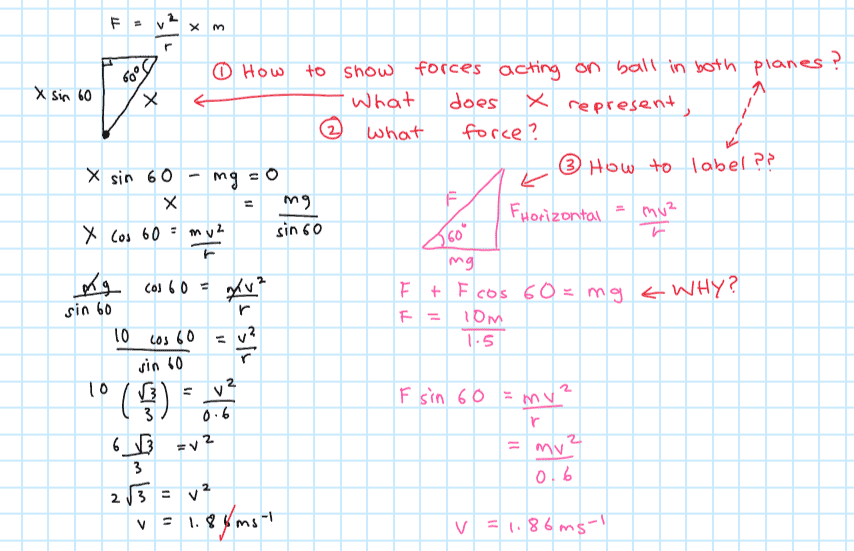 F = v²/r × m
60°
X sin 60
X
① How to show forces acting on ball in both planes?
What does X represent,
② What force?
X sin 60 - mg = 0
X = mg/sin 60
X cos 60 = mv²/r
mg/sin 60 cos 60 = mv²/r
10 cos 60/sin 60 = v²/r
10 (√3/3) = v²/0.6
6√3/3 = v²
2√3 = v²
v = 1.86 ms⁻¹
③ How to label??
F
60°
mg
FHorizontal = mv²/r
F + F cos 60 = mg ← WHY?
F = 10m/1.5
F sin 60 = mv²/r
= mv²/0.6
v = 1.86 ms⁻¹